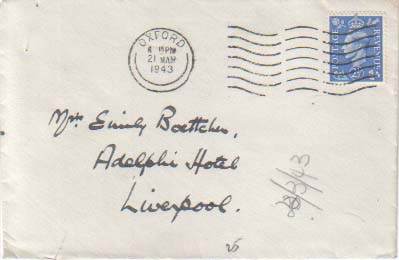 OXFORD
15 PM
21 MAR
1943
POSTAGE
REVENUE
Mrs Emily Boettcher,
Adelphi Hotel
Liverpool.
23/3/43
26